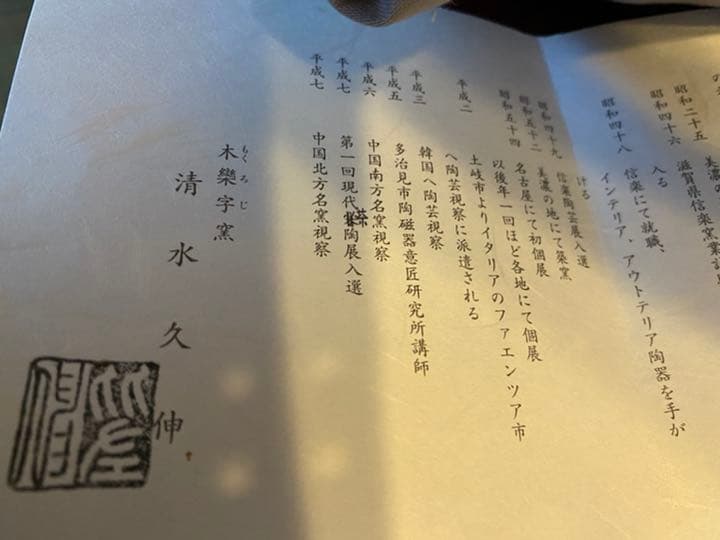 昭和二十五 美濃
昭和四十六 滋賀県信楽窯業試
入る
昭和四十八 信楽にて就職、
インテリア・アウトテリア陶器を手が
ける
昭和四十九 信楽陶芸展入選
昭和五十二 美濃の地にて築窯
昭和五十四 名古屋にて初個展
以後年一回ほど各地にて個展
平成二 土岐市よりイタリアのファエンツア市
へ陶芸視察に派遣される
平成三 韓国へ陶芸視察
平成五 多治見市陶磁器意匠研究所講師
平成六 中国南方名窯視察
平成七 第一回現代茶陶展入選
平成七 中国北方名窯視察
もくろじ
木欒字窯
清水久伸